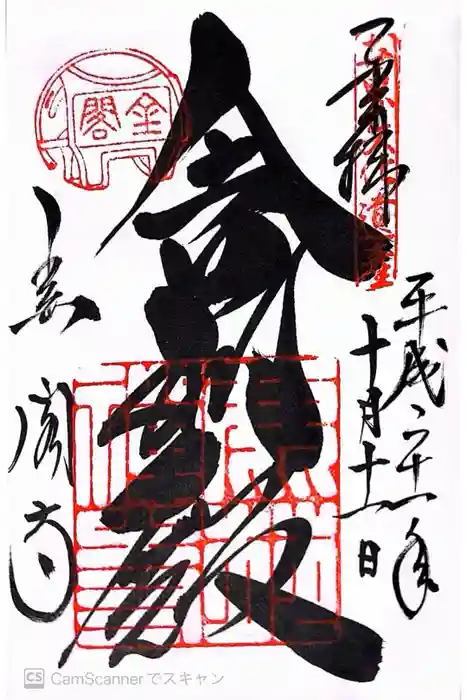 奉拝
平成二十一年
十月十一日
舎利殿
金閣
金閣寺
CS CamScannerでスキャン